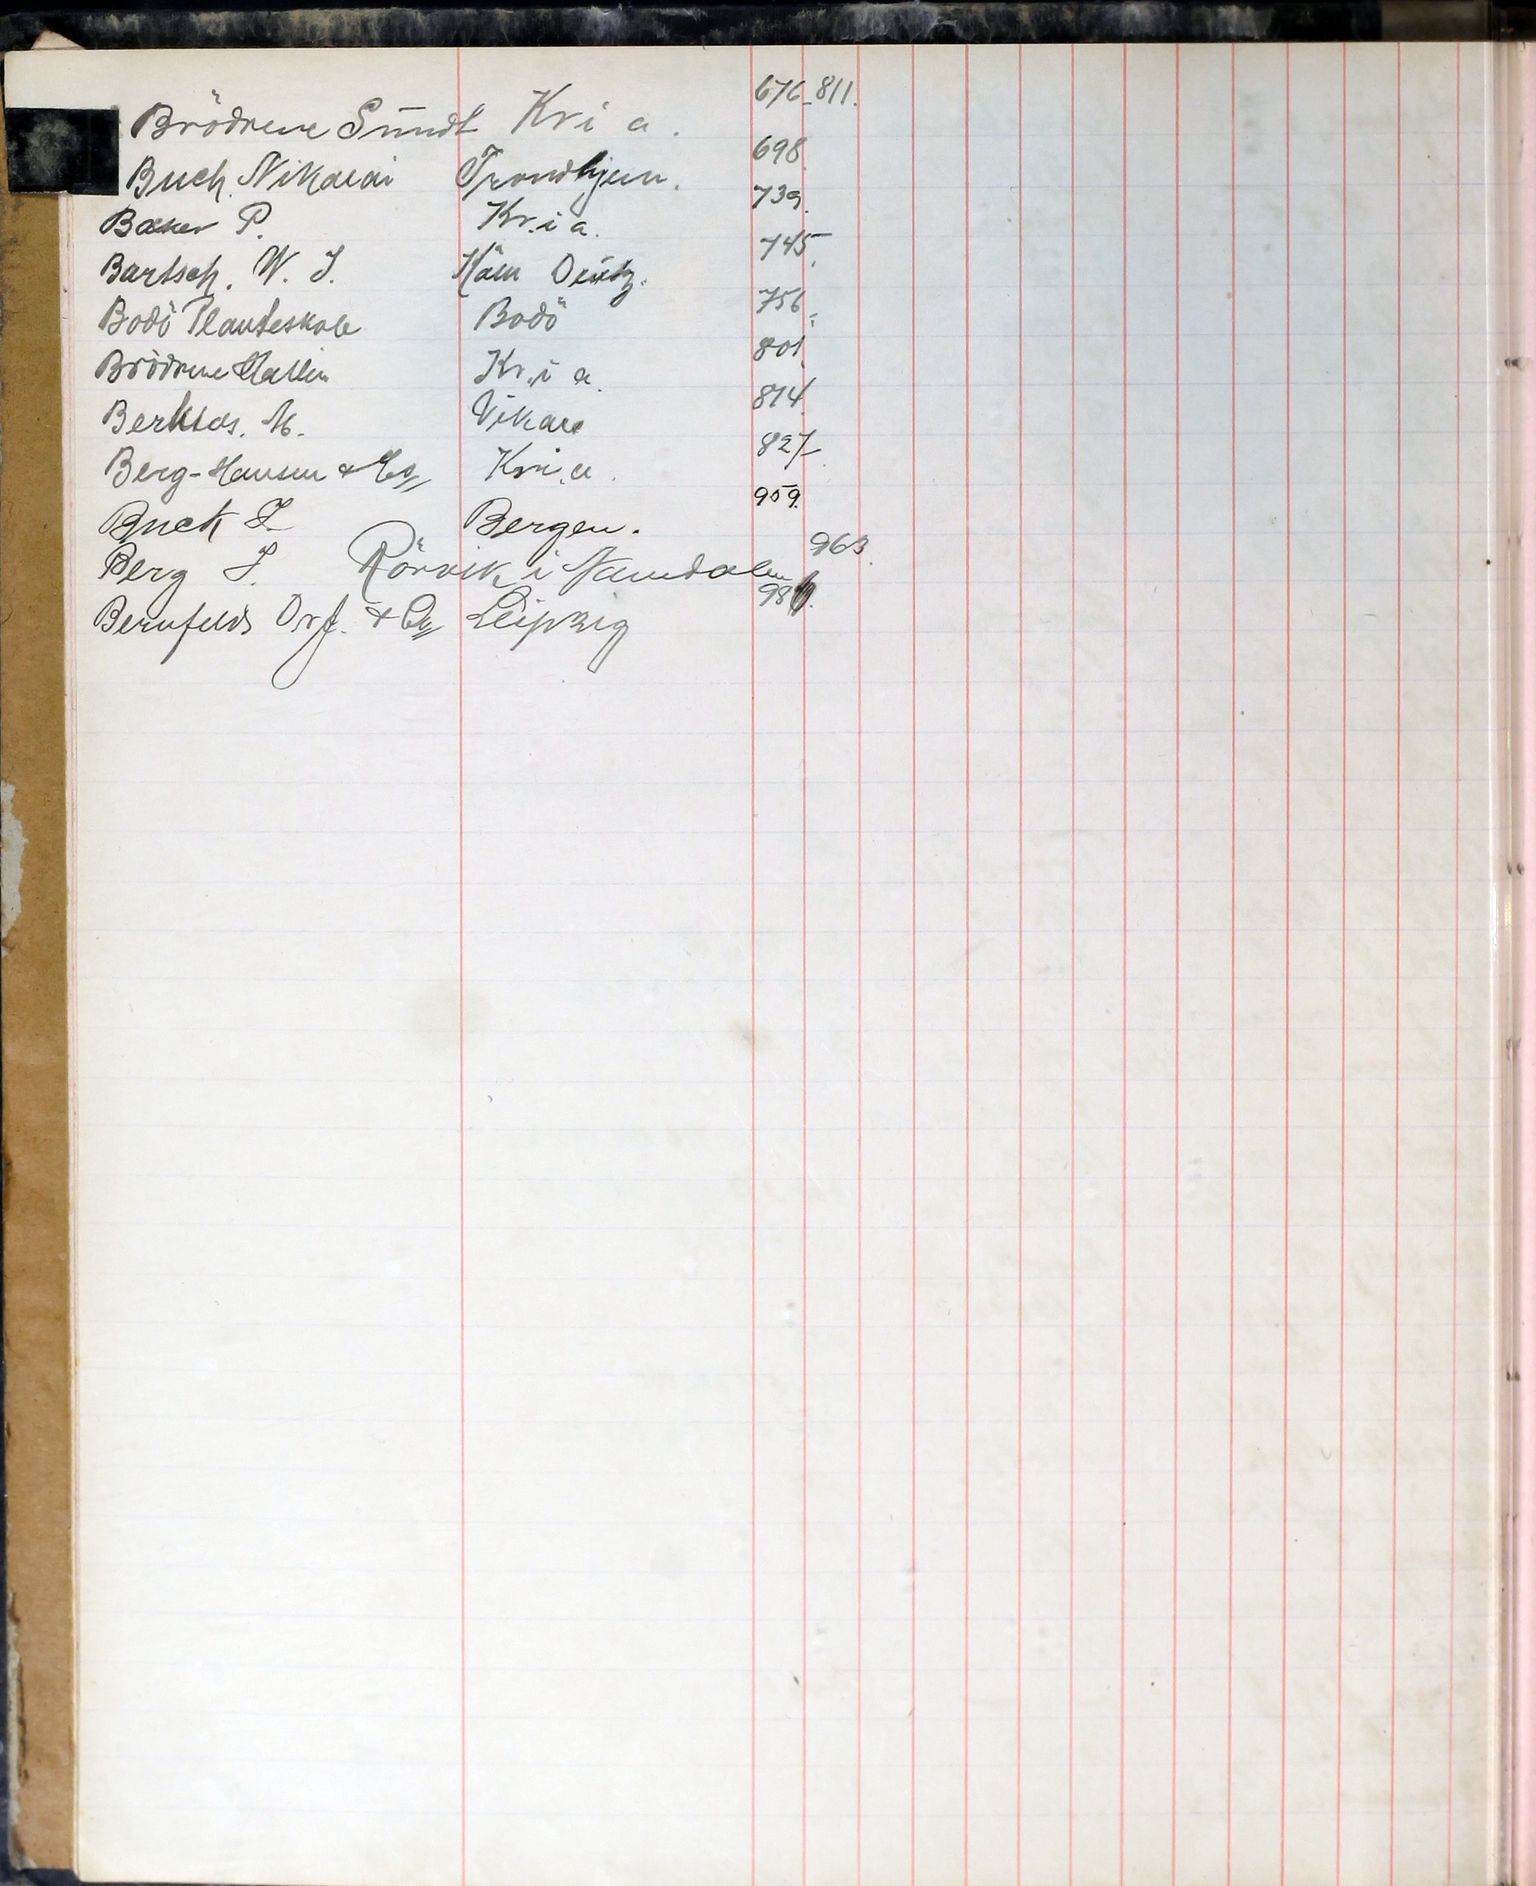 Brödrene Sundt Kria. 676 811.
Buch. Nikolai Trondhjem. 698
P. Kr.ia. 739.
Bartsch. W. J. Köln Deutz. 745.
Bodö Planteskole Bodö 756
Brödrene Hallin Kr.ia. 801.
M. Vikane 814
Berg-Hansen & Co Kria. 827
Buck J. Bergen. 959.
Berg J. Rörvik i Namdalen 963
Bernfelds & Co Leipzig